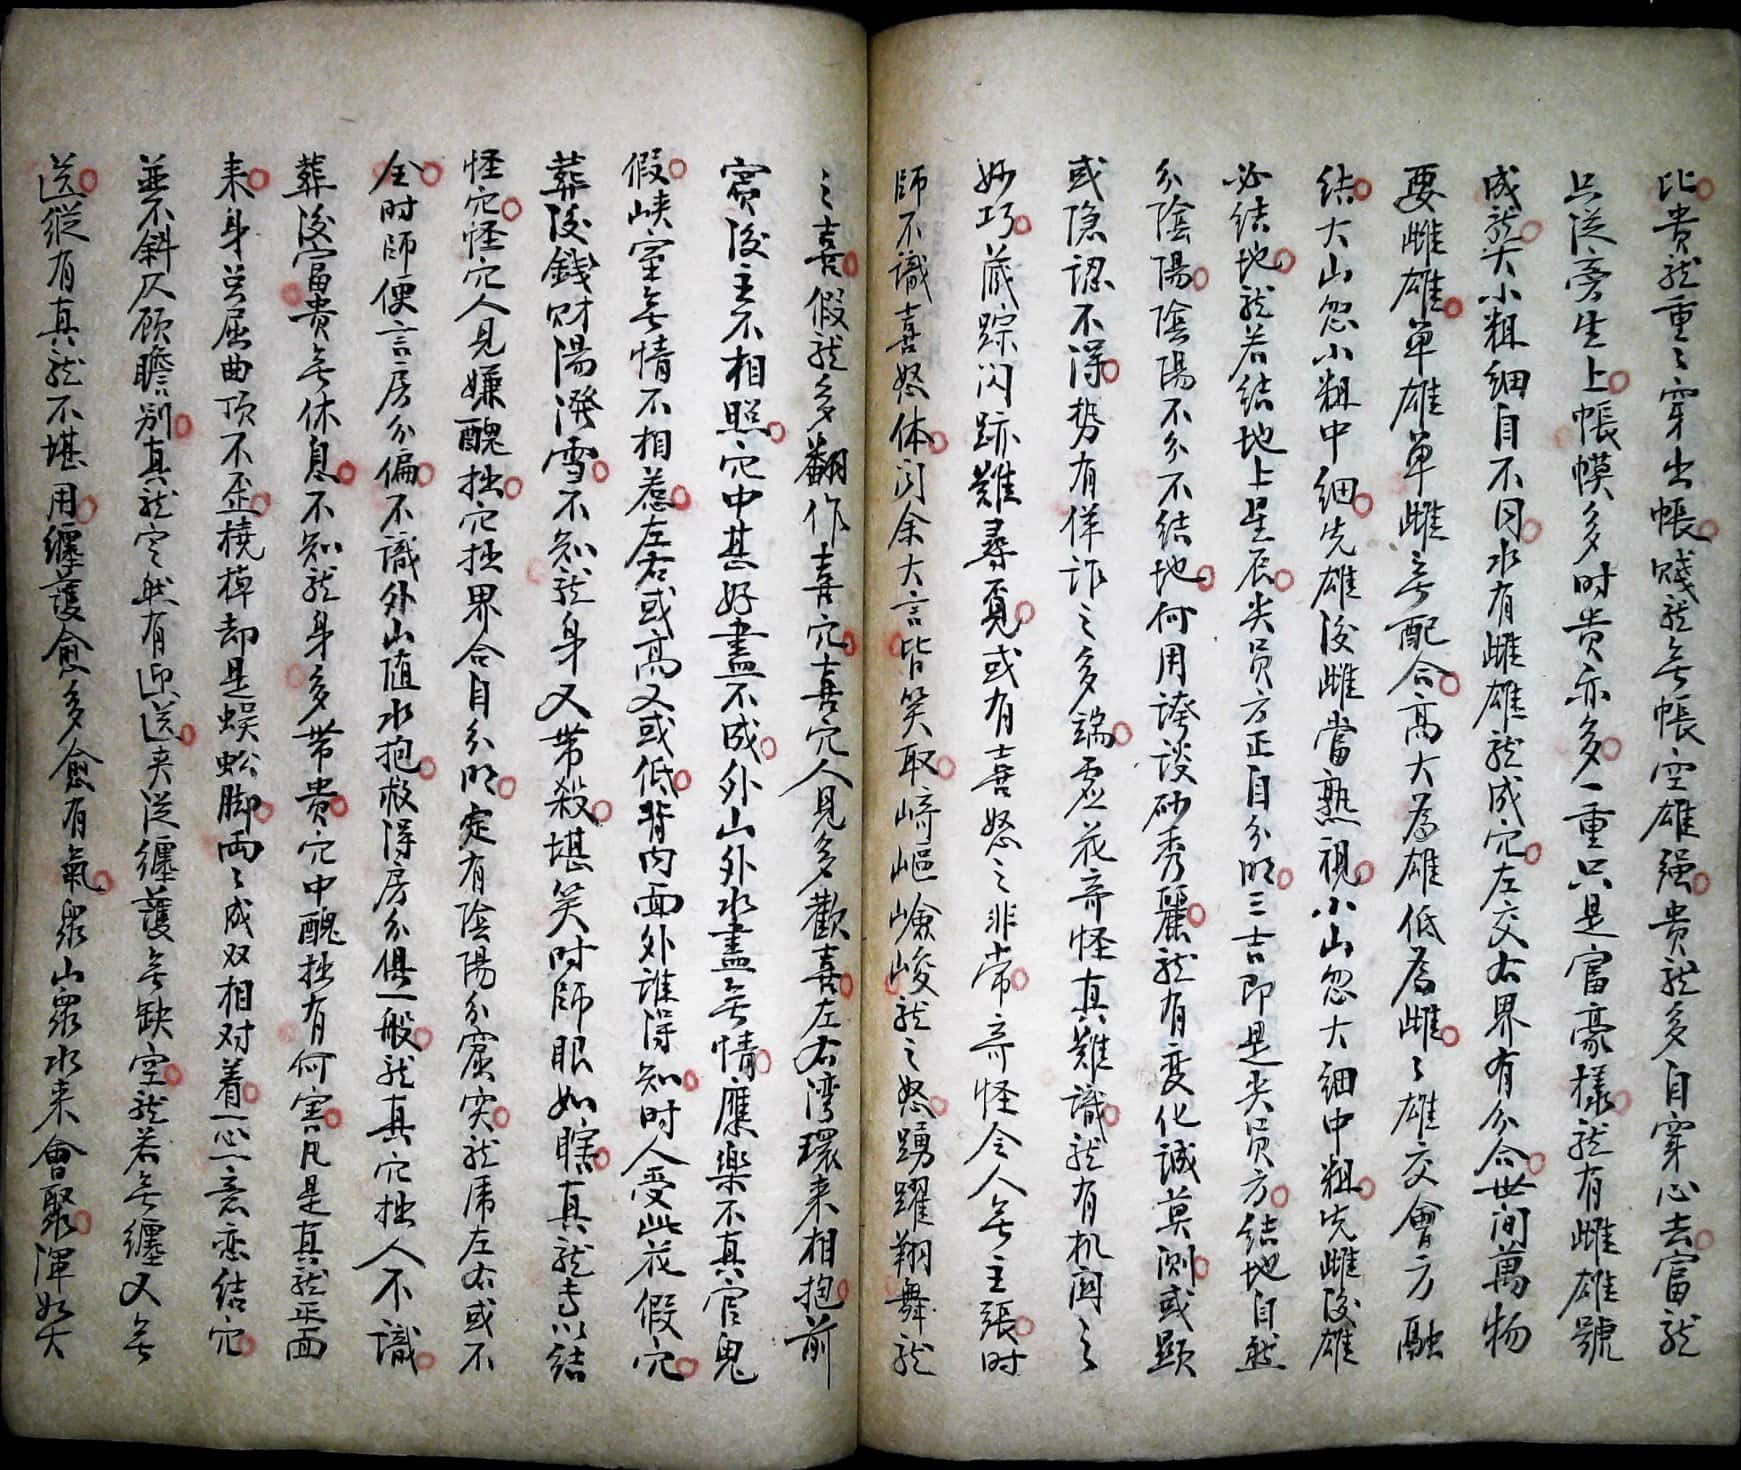 比貴龍重〻穿出帳賤龍无帳空雄强貴龍多自穿心去富龍
只從旁生上帳幙多时贵亦多一重只是富豪樣龍有雌雄號
成龍大小粗细自不同水有雌雄龍成穴左交右界有分合世间萬物
要雌雄单雄单雌无配合高大為雄低為雌〻雄交會方融
结大山忽小粗中细先雄後雌當熟视小山忽大细中粗先雌後雄
必结地龍若结地上星辰尖员方正自分明三吉即是尖员方结地自然
分陰陽陰陽不分不结地何用誇谈砂秀麗龍有变化誠莫测或顕
或隐認不得势有佯诈之多端虚花奇怪真難識龍有机関之
妙巧藏踪闪跡難尋覓或有喜怒之非常奇怪令人无主張时
師不識喜怒体闻余大言皆笑取崎嶇嶮峻龍之怒踴躍翔舞龍
之喜假龍多翻作喜穴喜穴人見多歡喜左右湾環来相抱前
賓後主不相照穴中甚好盡不成外山外水盡无情應樂不真官鬼
假峡室无情不相惹左右或高又或低背内面外谁得知时人受此花假穴
葬後錢财湯潑雪不知龍身又带殺堪笑时師眼如瞎真龍专以结
怪穴怪穴人見嫌醜拙穴拙界合自分明定有陰陽分窟突龍虎左右或不
全时師便言房分偏不識外山值水抱救得房分俱一般龍真穴拙人不識
葬後富貴无休息不知龍身多带贵穴中醜拙有何害凡是真龍正面
来身岂屈曲顶不歪橈棹却是蜈蚣脚两〻成双相对着一心一意恋结穴
並不斜仄顾瞻别真龍定然有迎送夹從纏護无缺空龍若无纏又无
送縱有真龍不堪用纏護愈多愈有氣眾山眾水来會聚渾如大